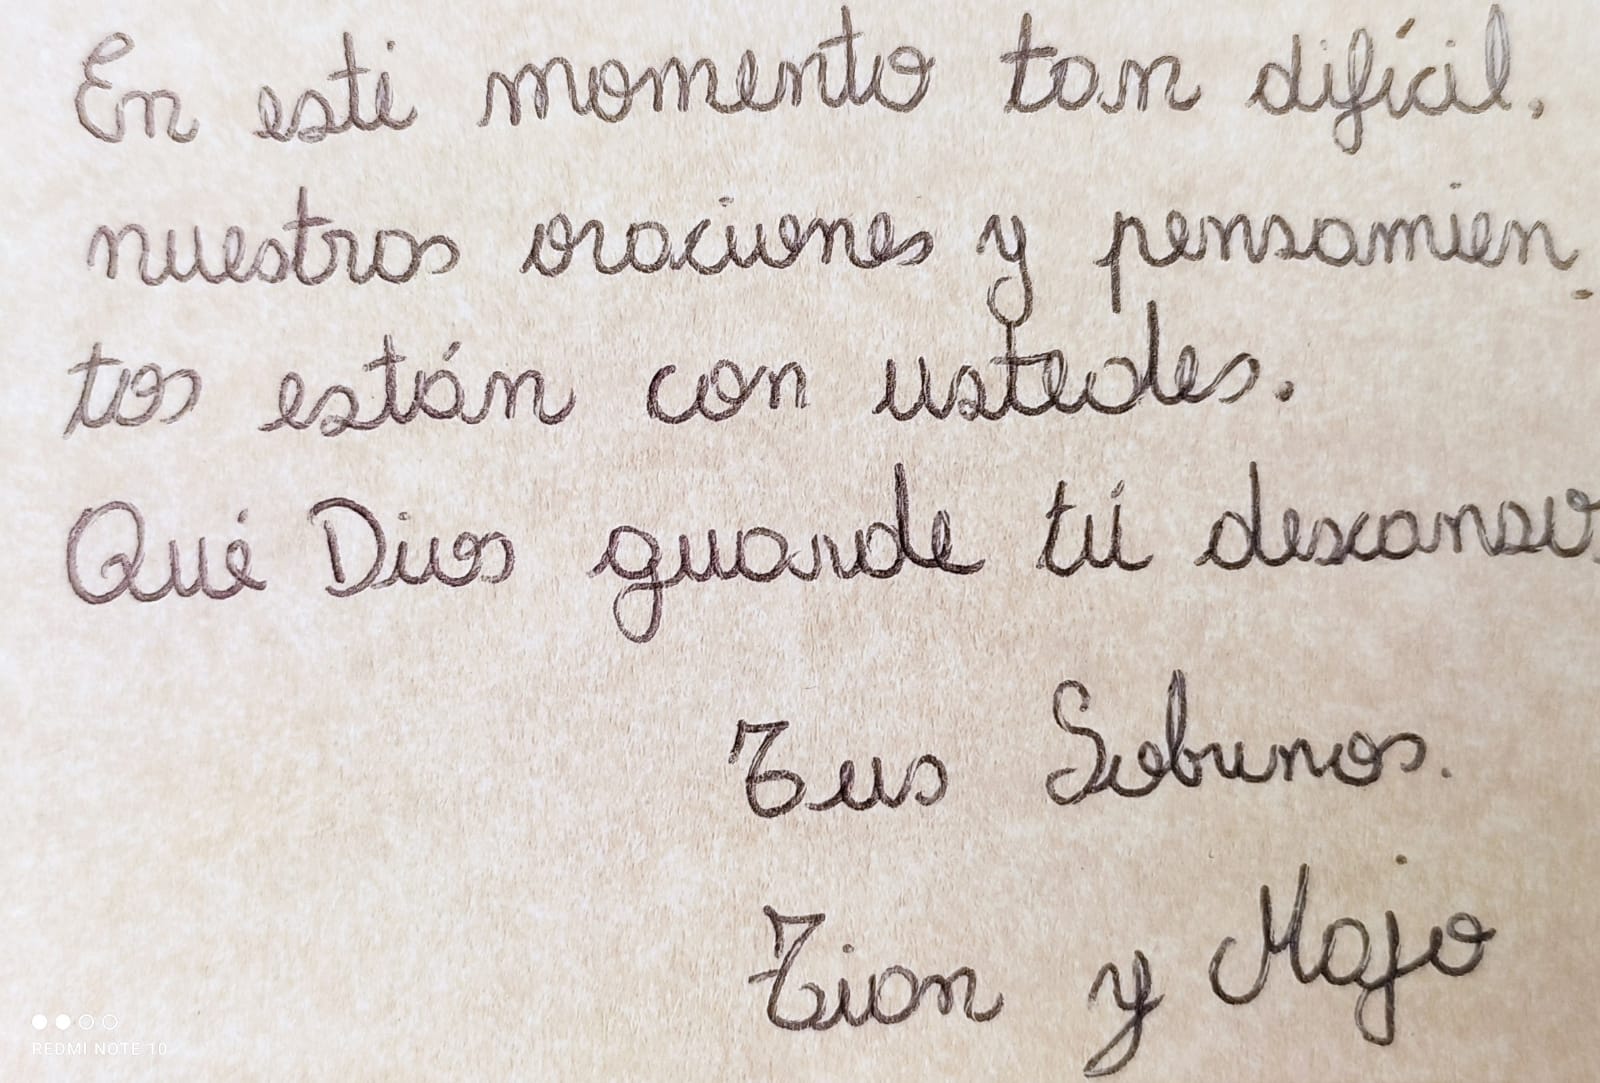 En este momento tan difícil,
nuestras oraciones y pensamien
tos están con ustedes.
Qué Dios guarde tú descanso.
Tus Sobrinos.
Tian y Majo
REDMI NOTE 10